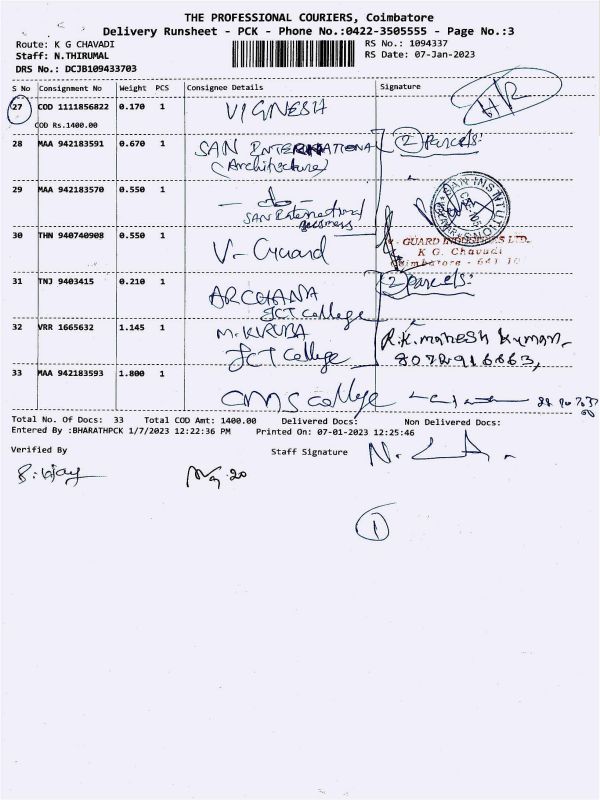 THE PROFESSIONAL COURIERS, Coimbatore
Delivery Runsheet - PCK - Phone No.:0422-3505555 - Page No.:3
Route: K G CHAVADI
RS No.: 1094337
Staff: N.THIRUMAL
RS Date: 07-Jan-2023
DRS No.: DCJB109433703
S No Consignment No Weight PCS Consignee Details Signature
27 COD 1111856822 0.170 1 VIGNESH HR
COD Rs.1400.00
28 MAA 942183591 0.670 1 SAN INTERNATIONAL 2 Parcels:
(Architecture)
29 MAA 942183570 0.550 1
SAN International
Business
30 THN 940740908 0.550 1 V-Guard
V - GUARD INDUSTRIES LTD.
K G. Chavadi
Coimbatore - 641 10
31 TNJ 9403415 0.210 1 ARCHANA 2 Parcels:
JCT College
32 VRR 1665632 1.145 1 M.KIRUBA R.K. mahesh kuman
JCT College
33 MAA 942183593 1.800 1 CMS college
Total No. Of Docs: 33 Total COD Amt: 1400.00 Delivered Docs: Non Delivered Docs:
Entered By :BHARATHPCK 1/7/2023 12:22:36 PM Printed On: 07-01-2023 12:25:46
Verified By Staff Signature
1